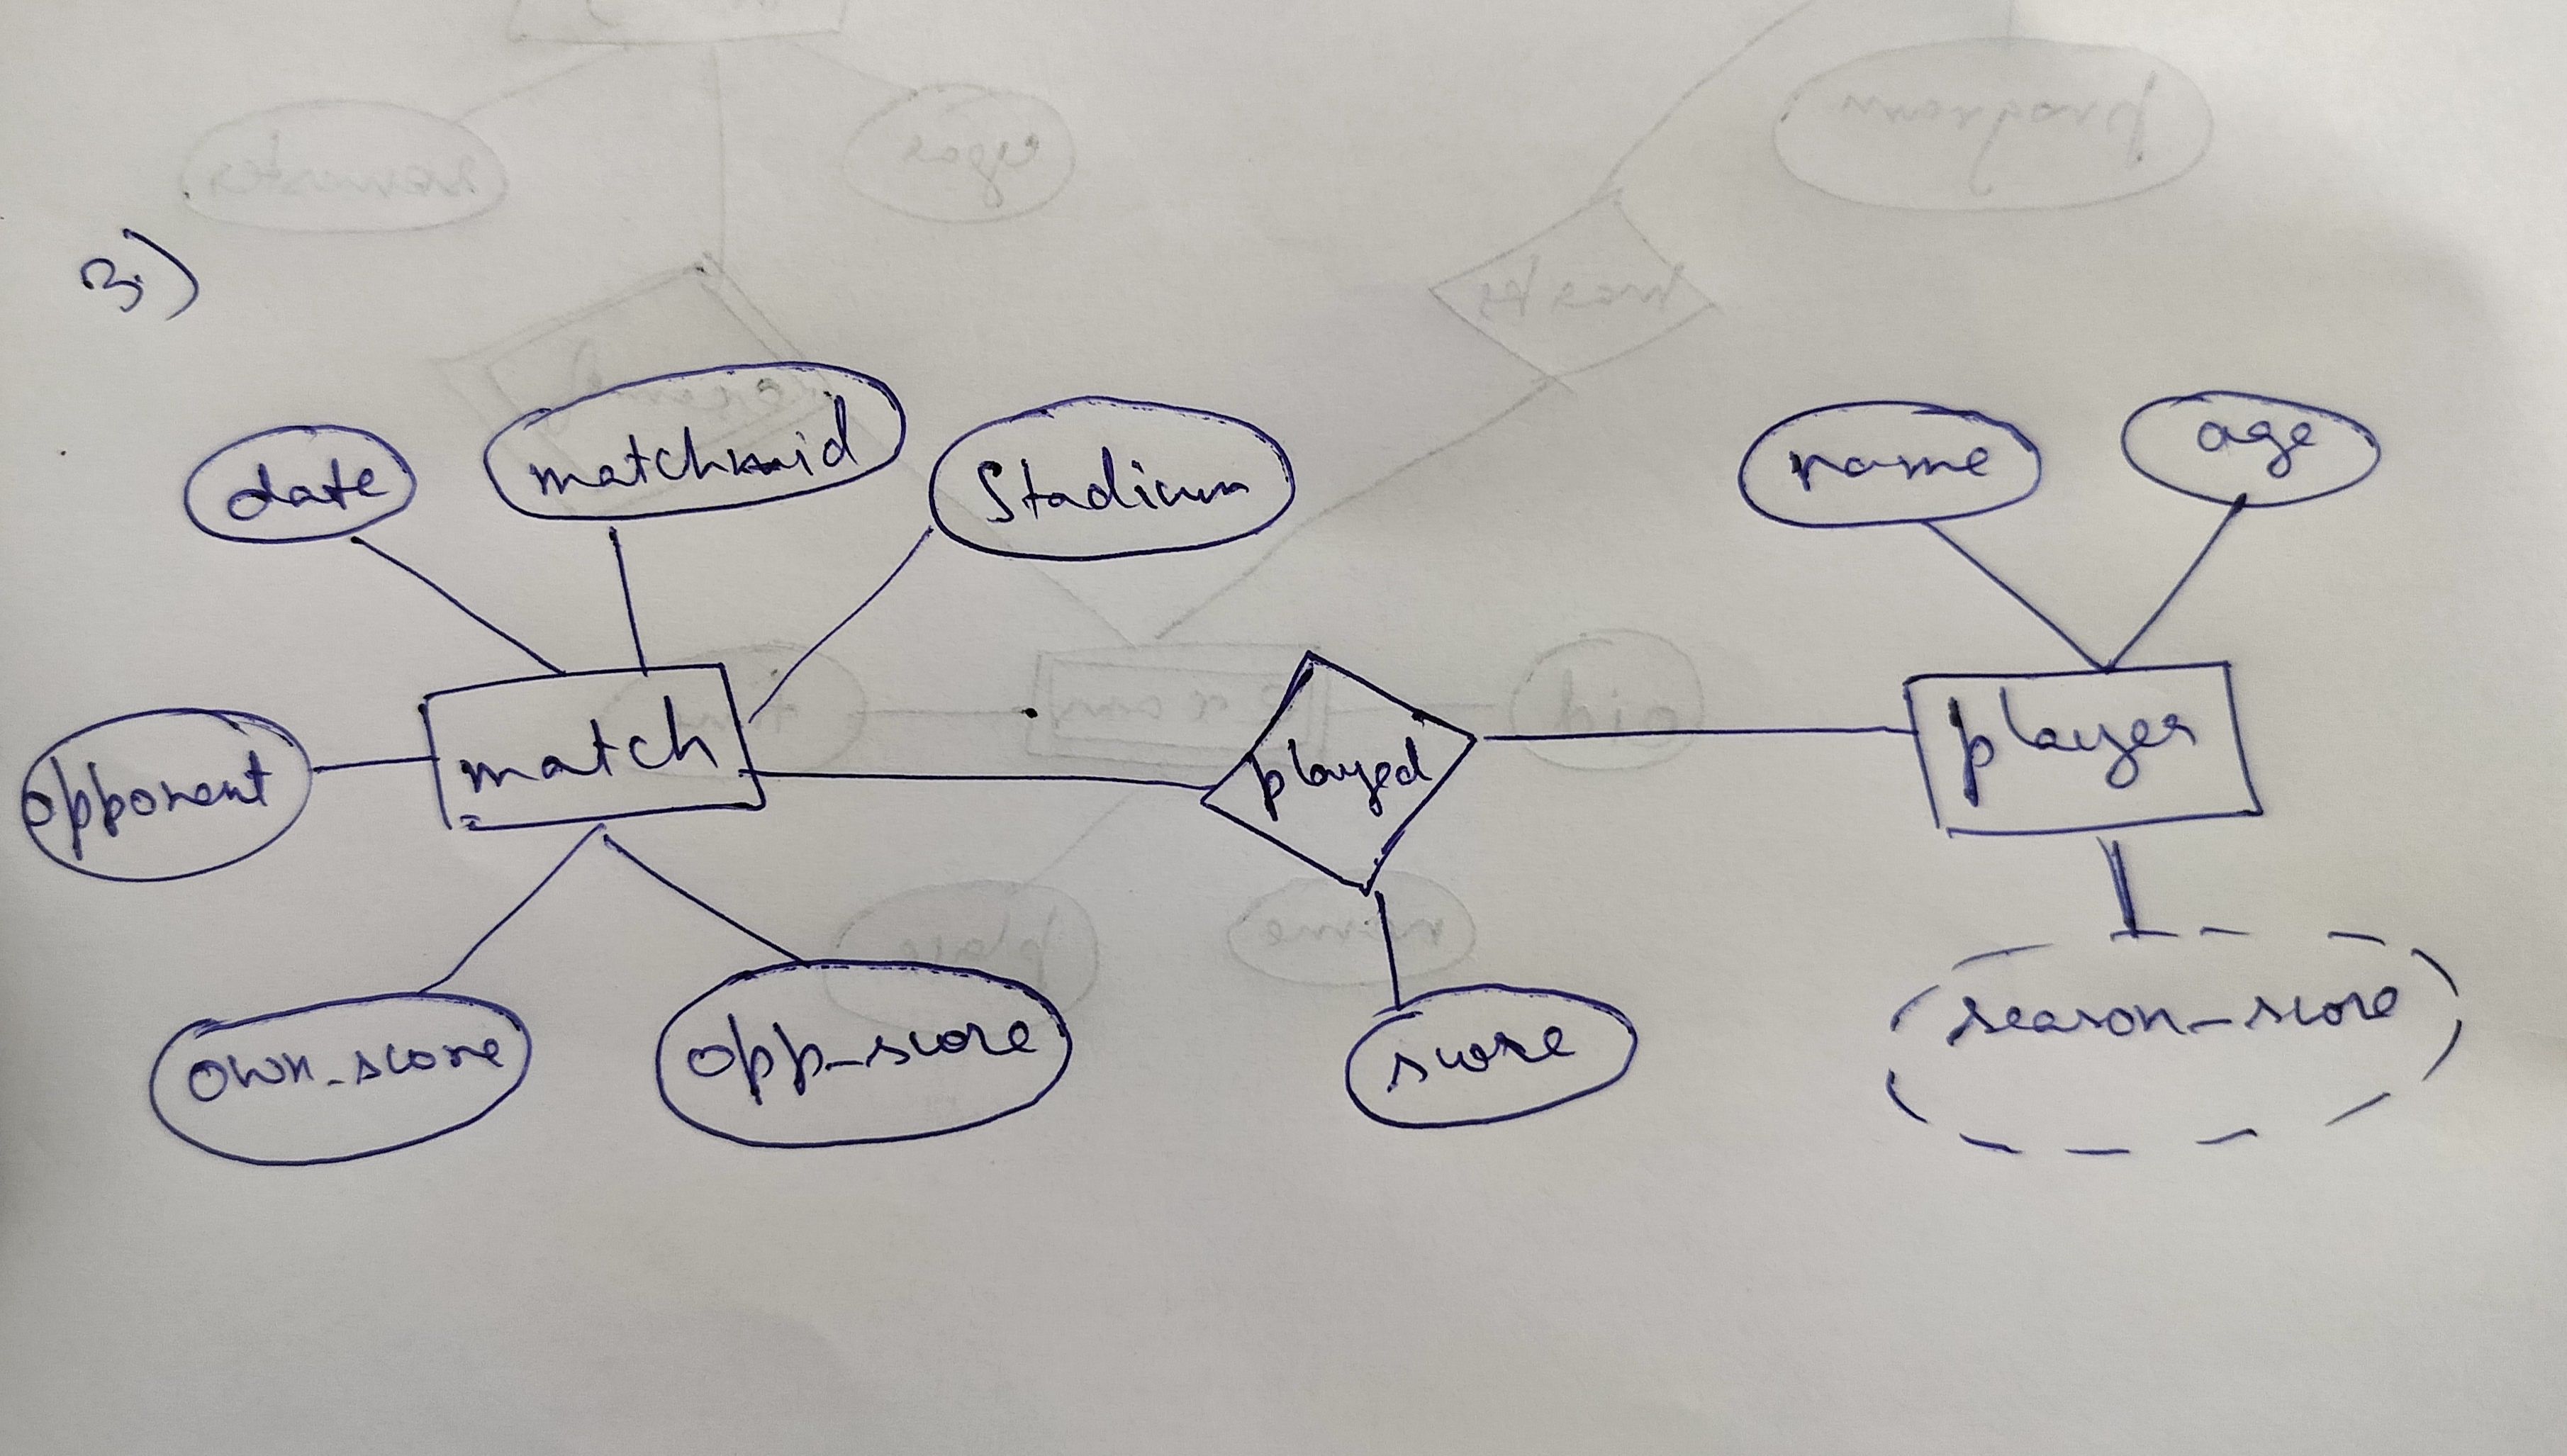 3)
date
matchid
Stadium
name
age
opponent
match
played
player
own_score
opp_score
score
season_score